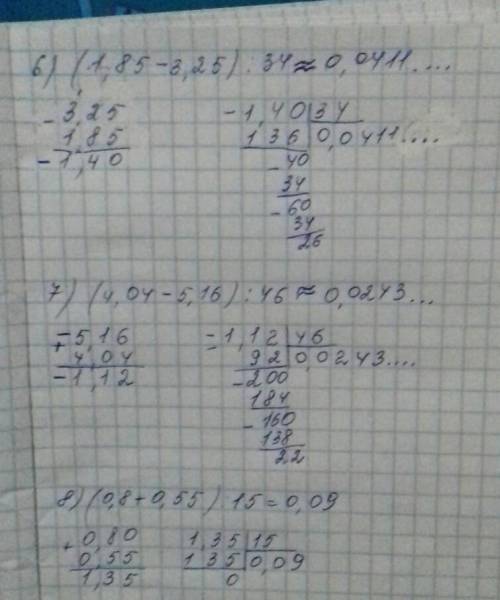 6) (1,85-3,25):34≈0,0411....
-3,25 -1,40|34
1,85 136|0,0411....
-1,40 -40
34
-60
34
26
7) (4,04-5,16):46≈0,0243...
-5,16 -1,12|46
+4,04 92|0,0243....
-1,12 -200
184
-160
138
22
8) (0,8+0,55) 15=0,09
+0,80 1,35|15
0,55 135|0,09
1,35 0